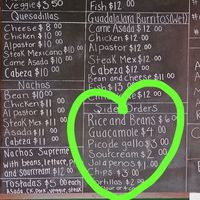 Veggie $3.50
Quesadillas
Cheese $8.00
Chicken $10.00
Al pastor $10.00
Steak Mexicano $10.00
Carne Asada $10.00
Cabeza $10
Nachos
Bean $10.00
Chicken $11.00
Al pastor $11.00
Steak Mex $11.00
Asada $11.00
Cabeza $11.00
Nachos Supreme
with beans, lettuce,
and sourcream $12.00
Tostadas $5.00 each
Asada, CK, pork, veggie, steak
Fish $12.00
Guadalajara Burritos (Wet)
Carne Asada $12.00
Chicken $12.00
Al pastor $12.00
Steak Mex $12.00
Cabeza $12.00
Bean and Cheese $11.00
Fish $13
$12.00
Side Orders
Rice and Beans $6.00
Guacamole $4.00
Pico de gallo $3.00
Sour cream $2.00
Jalapeños $1.00
Chips $3.00
Tortillas $2.00
Flour or